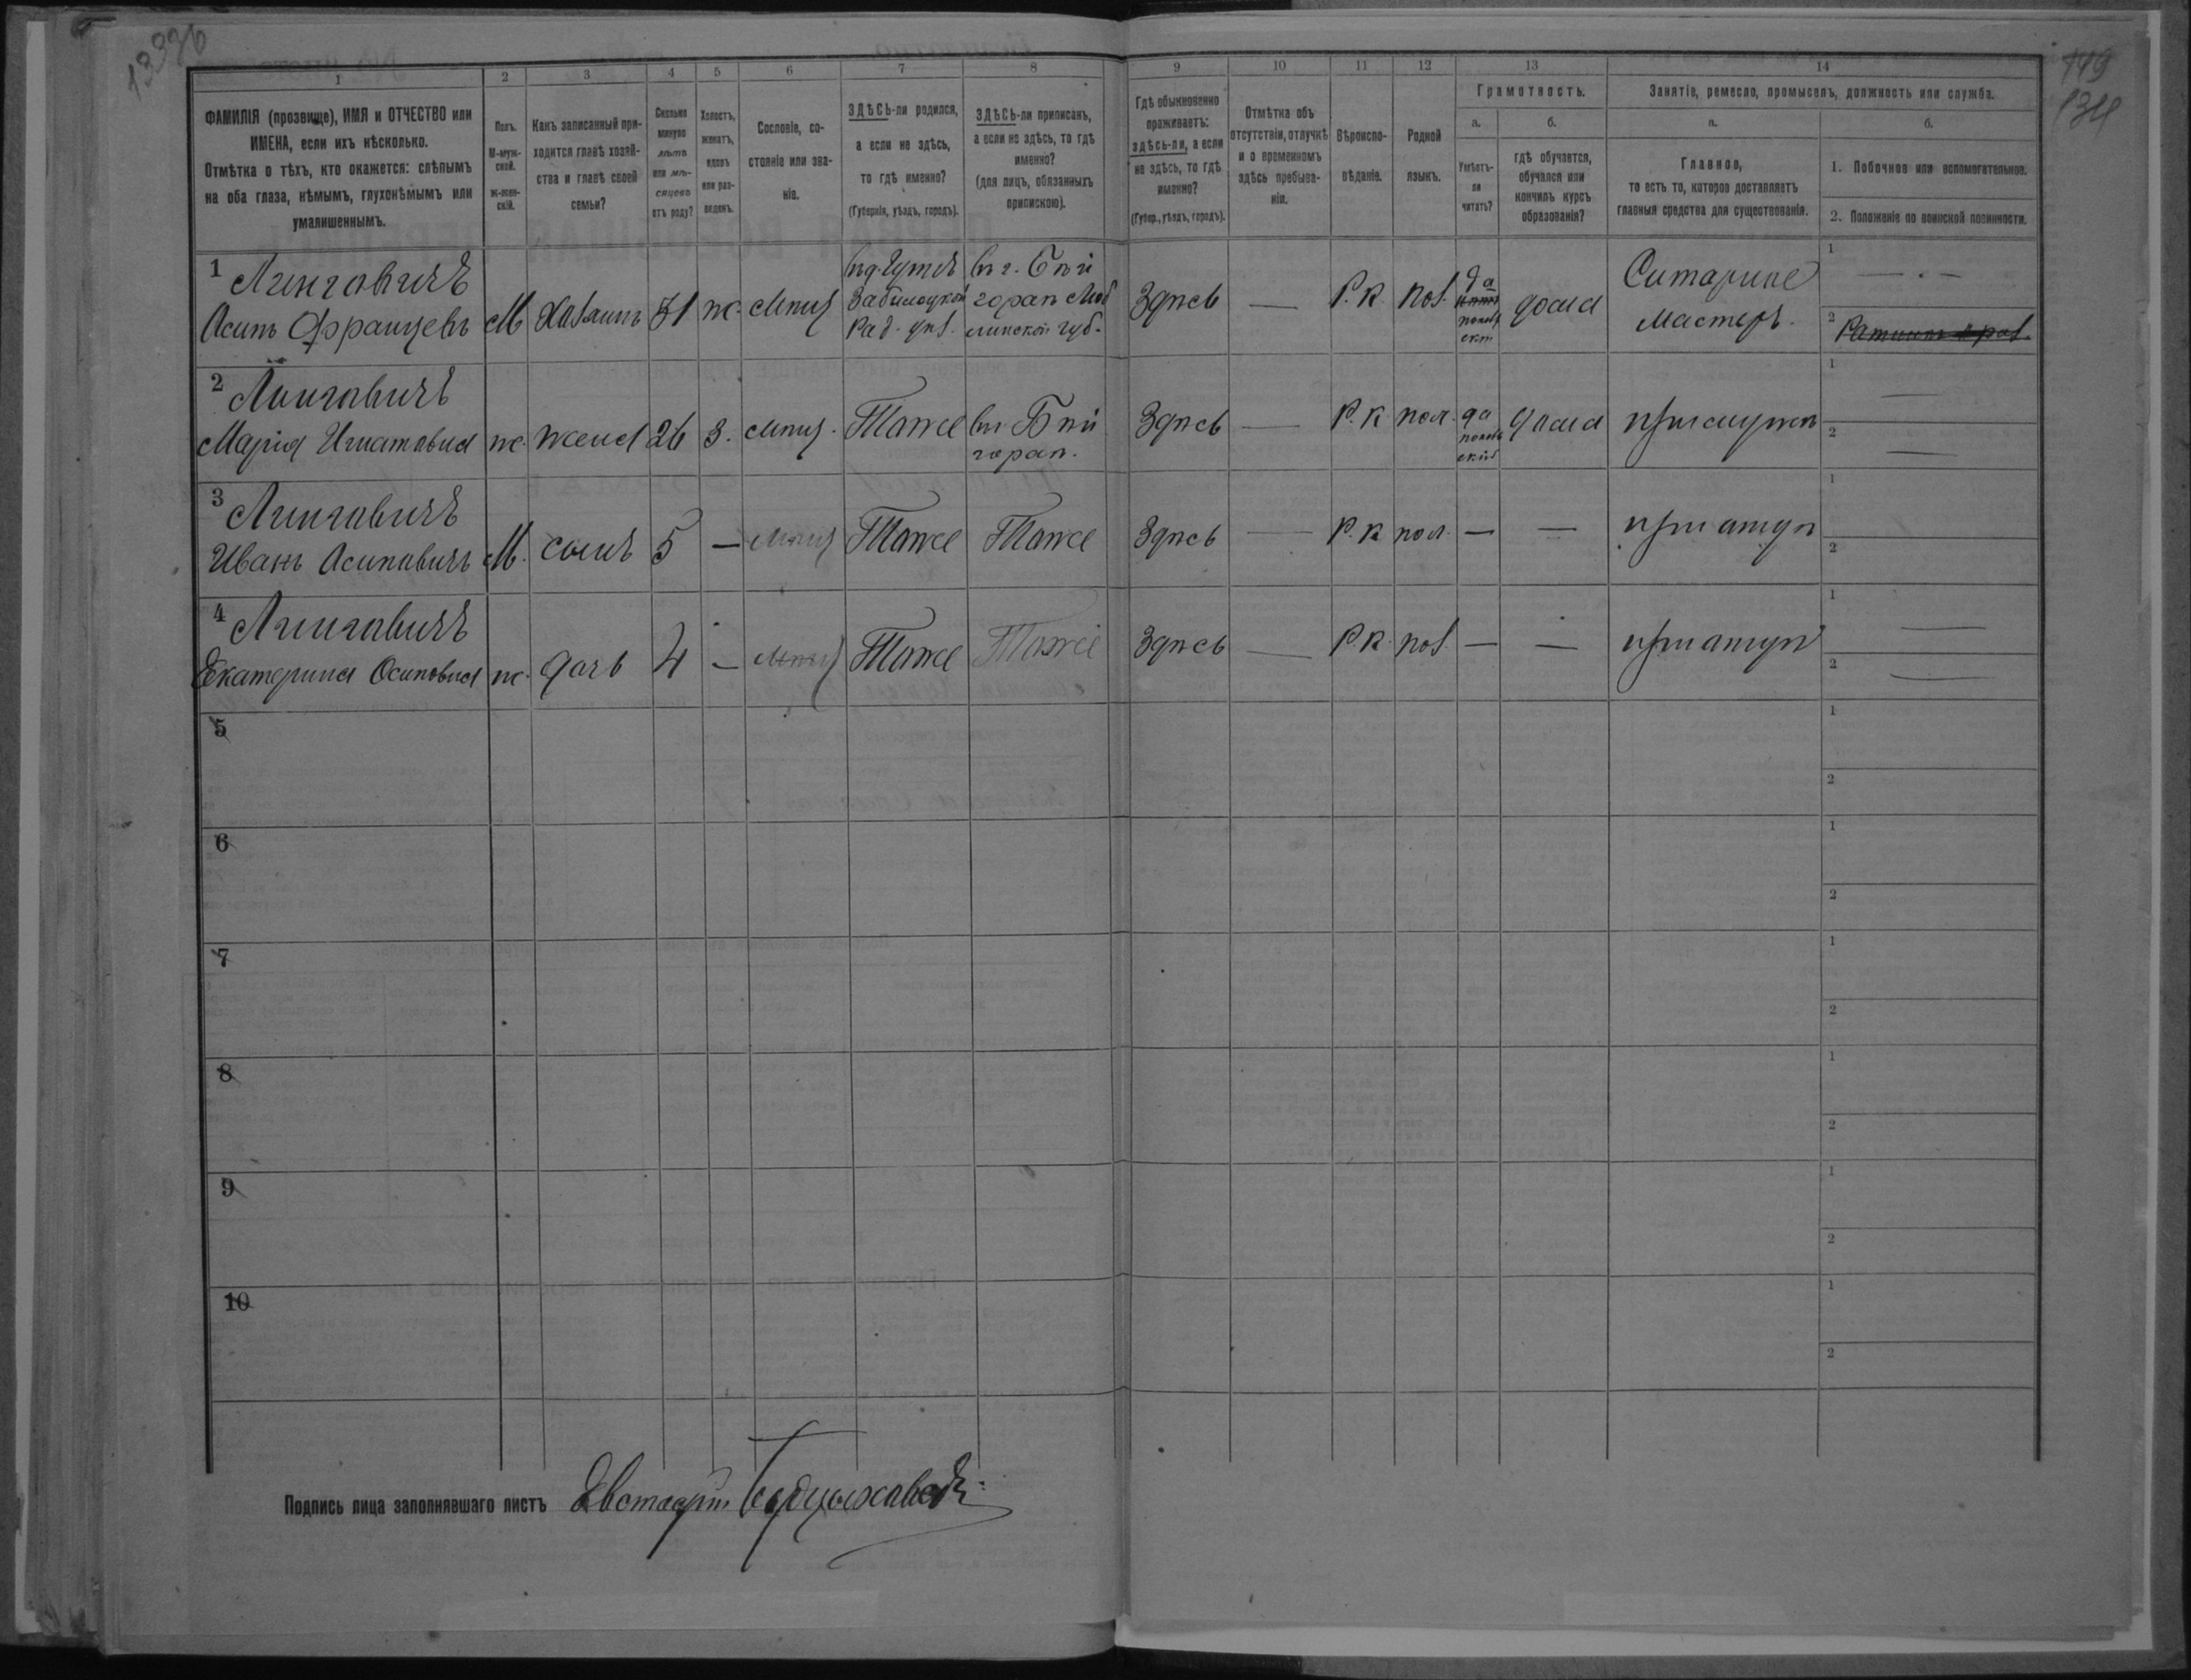 13396
149
134
1
2
3
4
5
6
7
8
9
10
11
12
13
14
ФАМИЛІЯ (прозвище), ИМЯ и ОТЧЕСТВО или
ИМЕНА, если ихъ нѣсколько.
Отмѣтка о тѣхъ, кто окажется: слѣпымъ
на оба глаза, нѣмымъ, глухонѣмымъ или
умалишеннымъ.
Полъ.
М-муж-
ской.
Ж-жен-
скій.
Какъ записанный при-
ходится главѣ хозяй-
ства и главѣ своей
семьи?
Сколько
минуло
лѣтъ
или мѣ-
сяцевъ
отъ роду?
Холостъ,
женатъ,
вдовъ
или раз-
веденъ.
Сословіе, со-
стояніе или зва-
ніе.
ЗДѢСЬ-ли родился,
а если не здѣсь,
то гдѣ именно?
(Губернія, уѣздъ, городъ).
ЗДѢСЬ-ли приписанъ,
а если не здѣсь, то гдѣ
именно?
(для лицъ, обязанныхъ
припискою).
Гдѣ обыкновенно
проживаетъ:
здѣсь-ли, а если
не здѣсь, то гдѣ
именно?
(Губер., уѣздъ, городъ).
Отмѣтка объ
отсутствіи, отлучкѣ
и о временномъ
здѣсь пребыва-
ніи.
Вѣроиспо-
вѣданіе.
Родной
языкъ.
Грамотность.
а.
Умѣетъ-
ли
читать?
б.
гдѣ обучается,
обучался или
кончилъ курсъ
образованія?
Занятіе, ремесло, промыселъ, должность или служба.
а.
Главное,
то есть то, которое доставляетъ
главныя средства для существованія.
б.
1. Побочное или вспомогательное.
2. Положеніе по воинской повинности.
1 Линговичъ
Асипъ Францевъ
М Хазаинъ 31 ж. мѣщ
Рад. уѣз.
въ г. Бѣлі
губ.
Здѣсь — Р. К. пол. да
дома
Ситарине
мастеръ.
1 —
2
2 Линговичъ
Марія Игнатовна
ж. жена 26 З. мѣщ. Тоже
въ Бѣлі
горап.
Здѣсь — Р. К. пол. да
дома
присмужѣ
1 —
2 —
3 Линговичъ
Иванъ Асиповичъ
М. сынъ 5 — мѣщ Тоже Тоже Здѣсь — Р. К. пол. — — приатцѣ
1
2
4 Линговичъ
Екатерина Осиповна
ж. дочь 4 — мѣщ Тоже Тоже Здѣсь — Р. К. пол. — — приатцѣ
1 —
2 —
5
1
2
6
1
2
7
1
2
8
1
2
9
1
2
10
1
2
Подпись лица заполнявшаго листъ